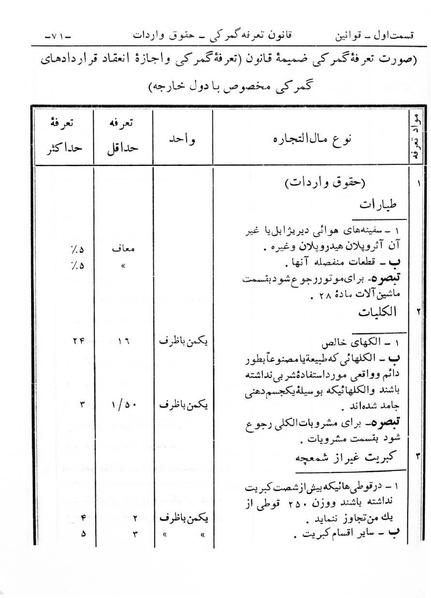 قسمت اول ـ قوانین    قانون تعرفه گمرکی ـ حقوق واردات    ـ۷۱ـ
(صورت تعرفهٔ گمرکی ضمیمهٔ قانون (تعرفهٔ گمرکی و اجازهٔ انعقاد قراردادهای
گمرکی مخصوص با دول خارجه)
مواد تعرفه    نوع مال‌التجاره    واحد    تعرفه حداقل    تعرفهٔ حداکثر
۱    (حقوق واردات)
طیارات
۱ ـ سفینه‌های هوائی دیریژابل یا غیر
آن آئروپلان هیدروپلان وغیره .    معاف    ۵٪
ب ـ قطعات منفصله آنها .    »    ۵٪
تبصره ـ برای موتور رجوع شود بقسمت
ماشین‌آلات مادهٔ ۲۸ .
۲    الکلیات
۱ ـ الکهای خالص    یکمن باظرف    ۱۶    ۲۴
ب ـ الکلهائی که طبیعة یا مصنوعاً بطور
دائم و واقعی مورد استفادهٔ شربی نداشته
باشند والکلهائیکه بوسیلهٔ یکجسم دهنی
جامد شده‌اند .    یکمن باظرف    ۱/۵۰    ۳
تبصره ـ برای مشروبات الکلی رجوع
شود بقسمت مشروبات .
۳    کبریت غیر از شمعچه
۱ ـ درقوطی‌هائیکه بیش از شصت کبریت
نداشته باشند ووزن ۲۵۰ قوطی از
یك من تجاوز ننماید .    یکمن باظرف    ۲    ۴
ب ـ سایر اقسام کبریت .    » »    ۳    ۵